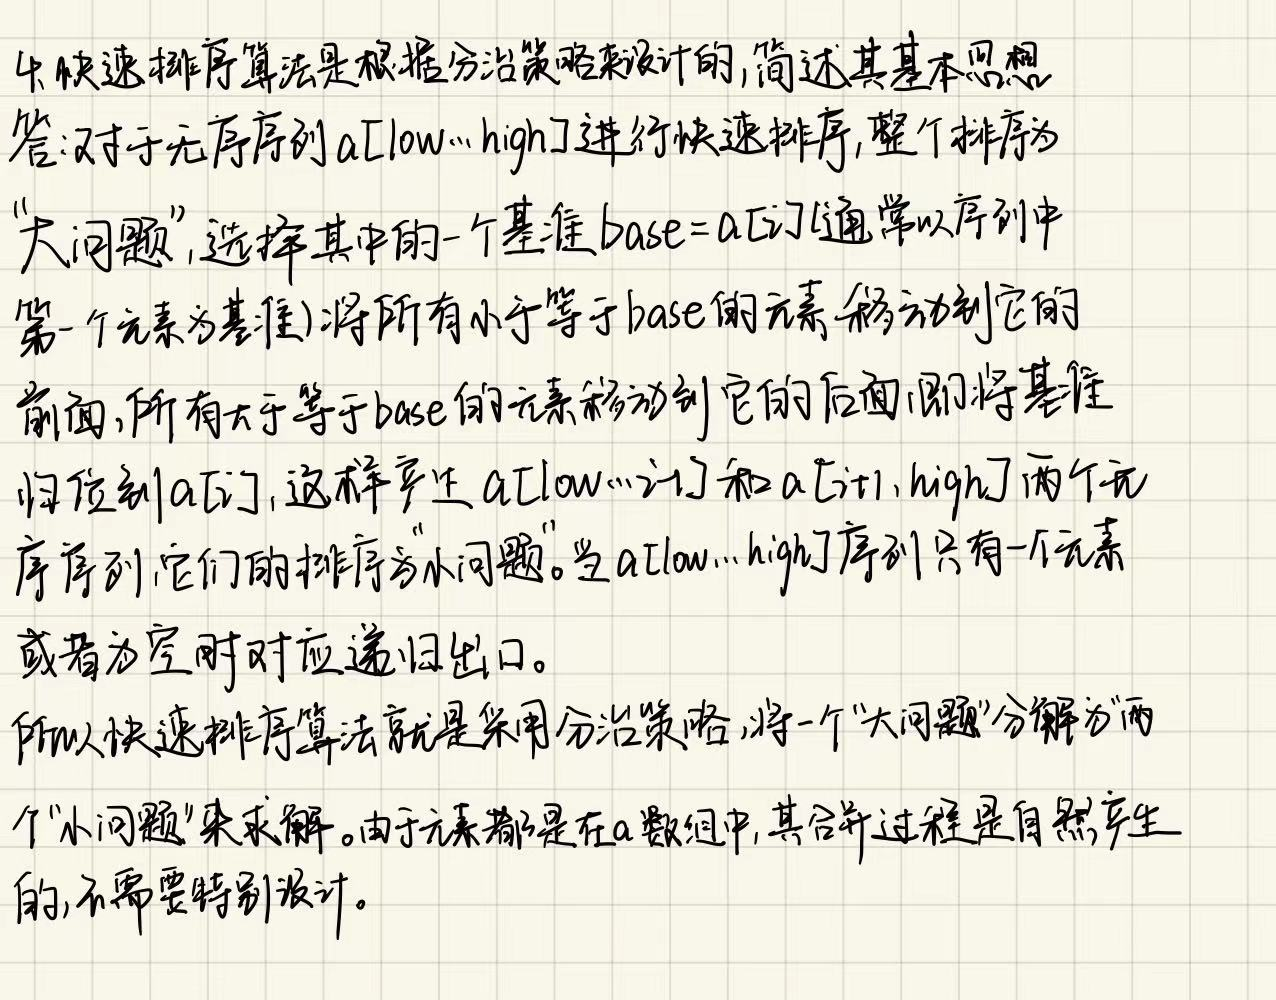 4.快速排序算法是根据分治策略来设计的,简述其基本思想
答:对于无序序列a[low…high]进行快速排序,整个排序为
“大问题”,选择其中的一个基准base=a[i](通常以序列中
第一个元素为基准)将所有小于等于base的元素移动到它的
前面,所有大于等于base的元素移动到它的后面,即将基准
归位到a[i],这样产生a[low…i-1]和a[i+1,high]两个无
序序列,它们的排序为“小问题”。当a[low…high]序列只有一个元素
或者为空时对应递归出口。
所以快速排序算法就是采用分治策略,将一个“大问题”分解为两
个“小问题”来求解。由于元素都是在a数组中,其合并过程是自然产生
的,不需要特别设计。